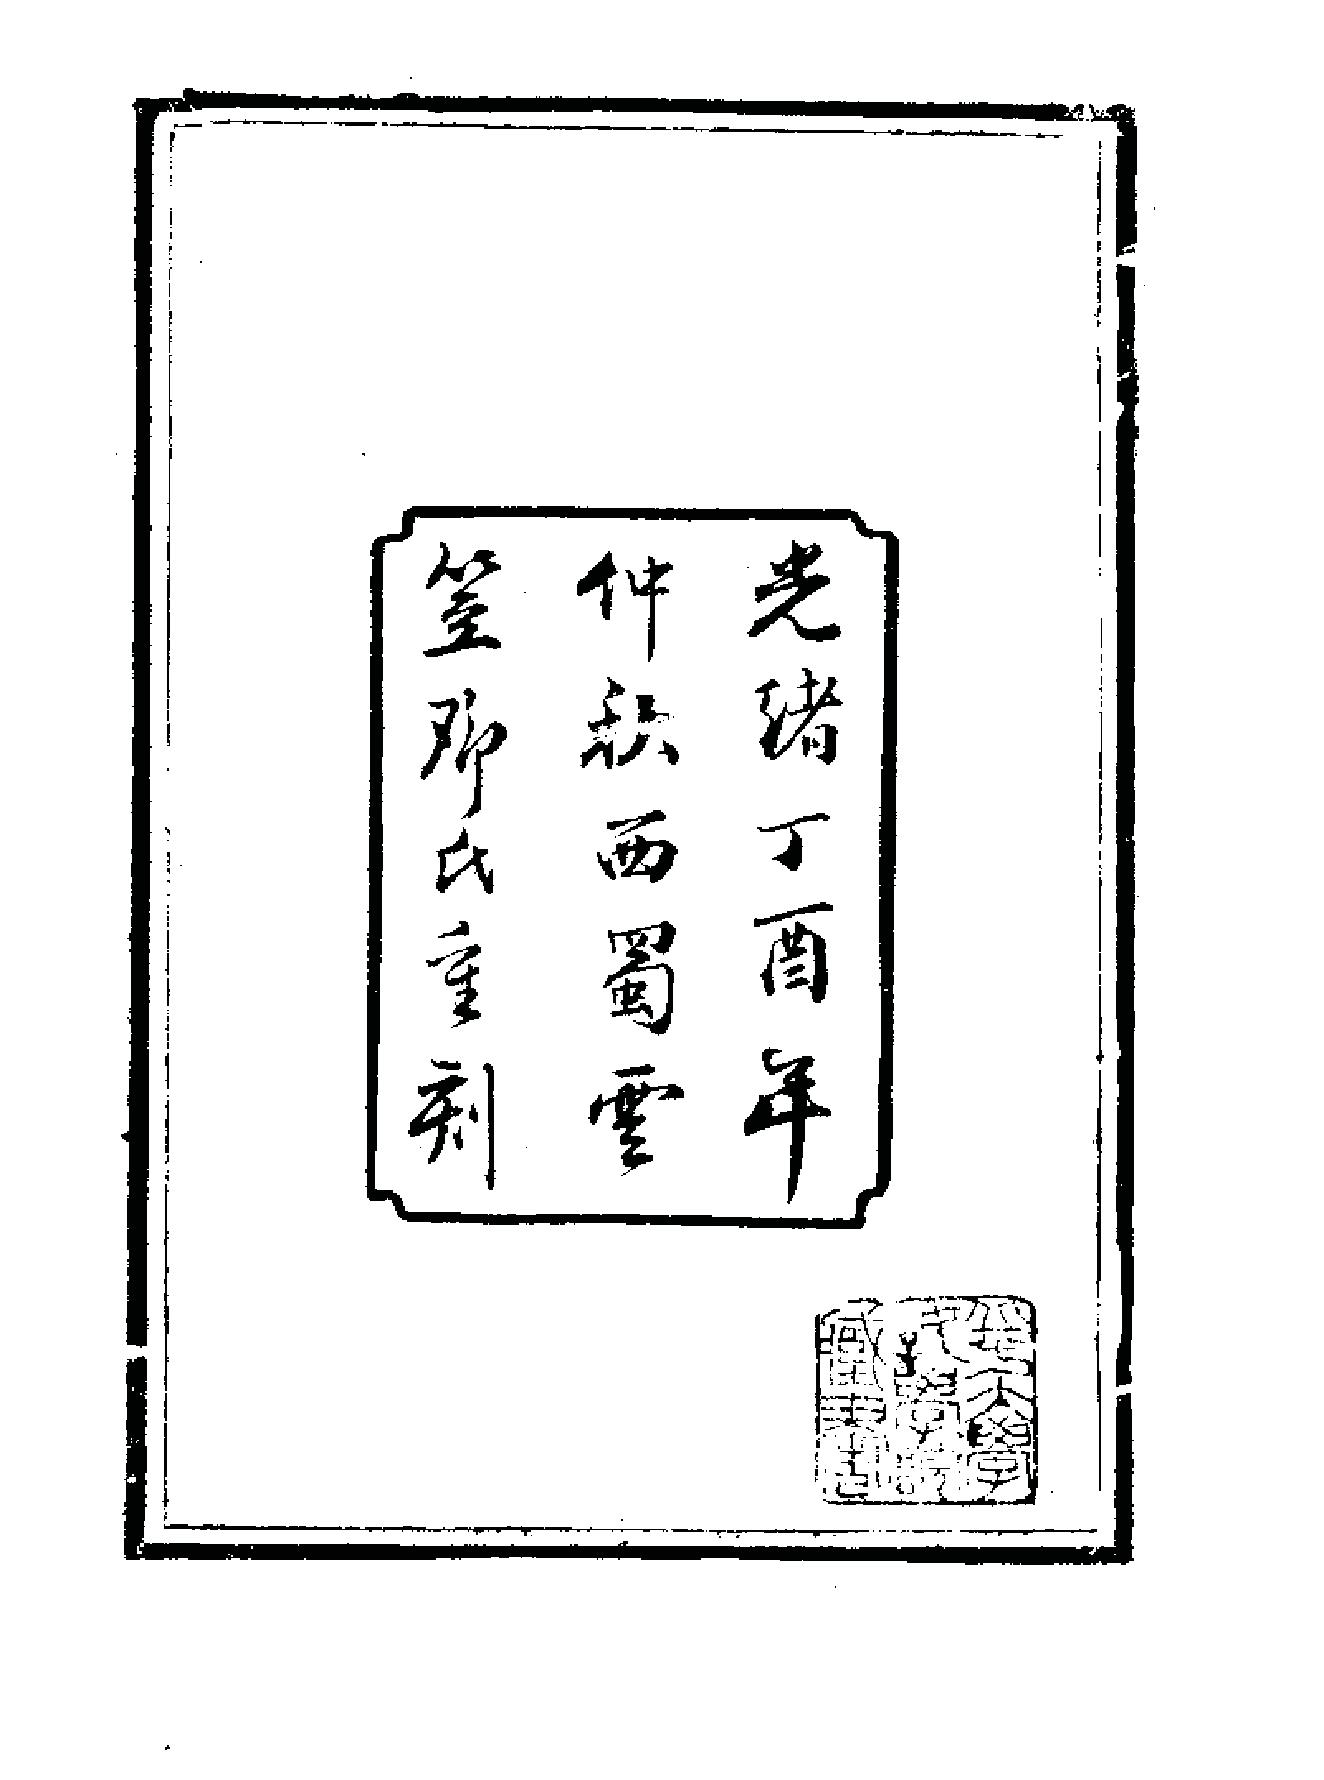 光緒丁酉年
仲秋西蜀雲
笠卿氏重刻